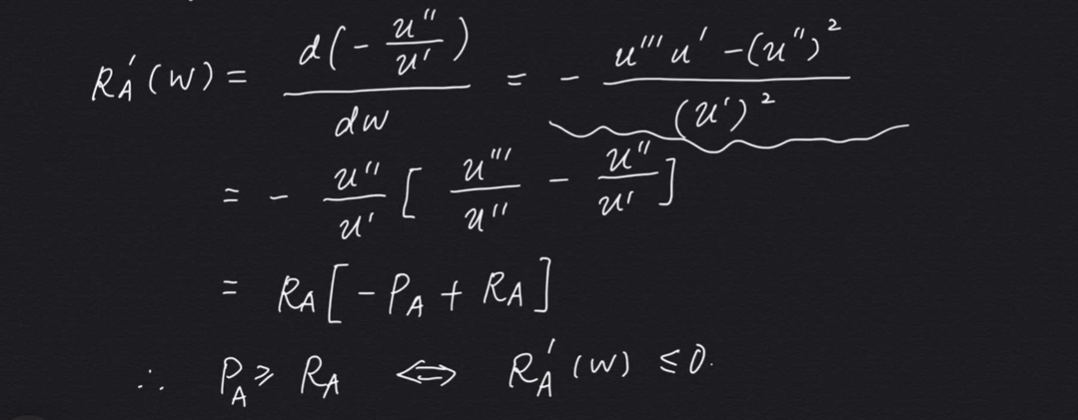 R_A'(W) = \frac{d(-\frac{u''}{u'})}{dw} = -\frac{u'''u' - (u'')^2}{(u')^2}
= -\frac{u''}{u'}[\frac{u'''}{u''} - \frac{u''}{u'}]
= R_A[-P_A + R_A]
∴ P_A ≥ R_A ⟺ R_A'(W) ≤ 0.